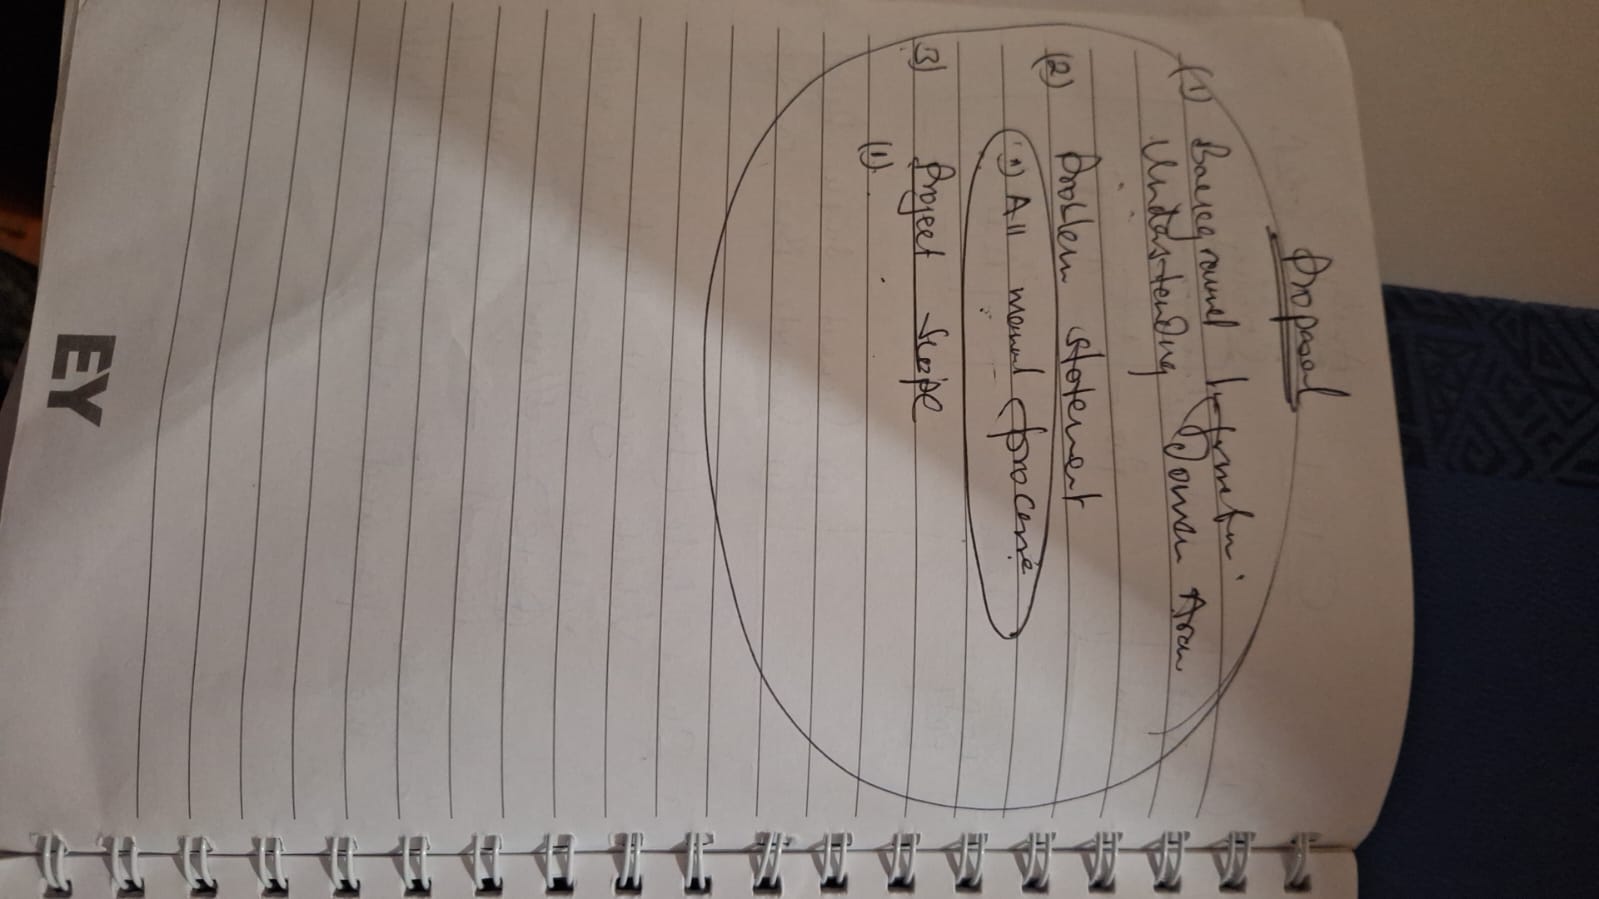 Proposal
(1) Background Information
Understanding Domain Area
(2) Problem statement
(1) All manual process
3) Project Scope
(1)
EY